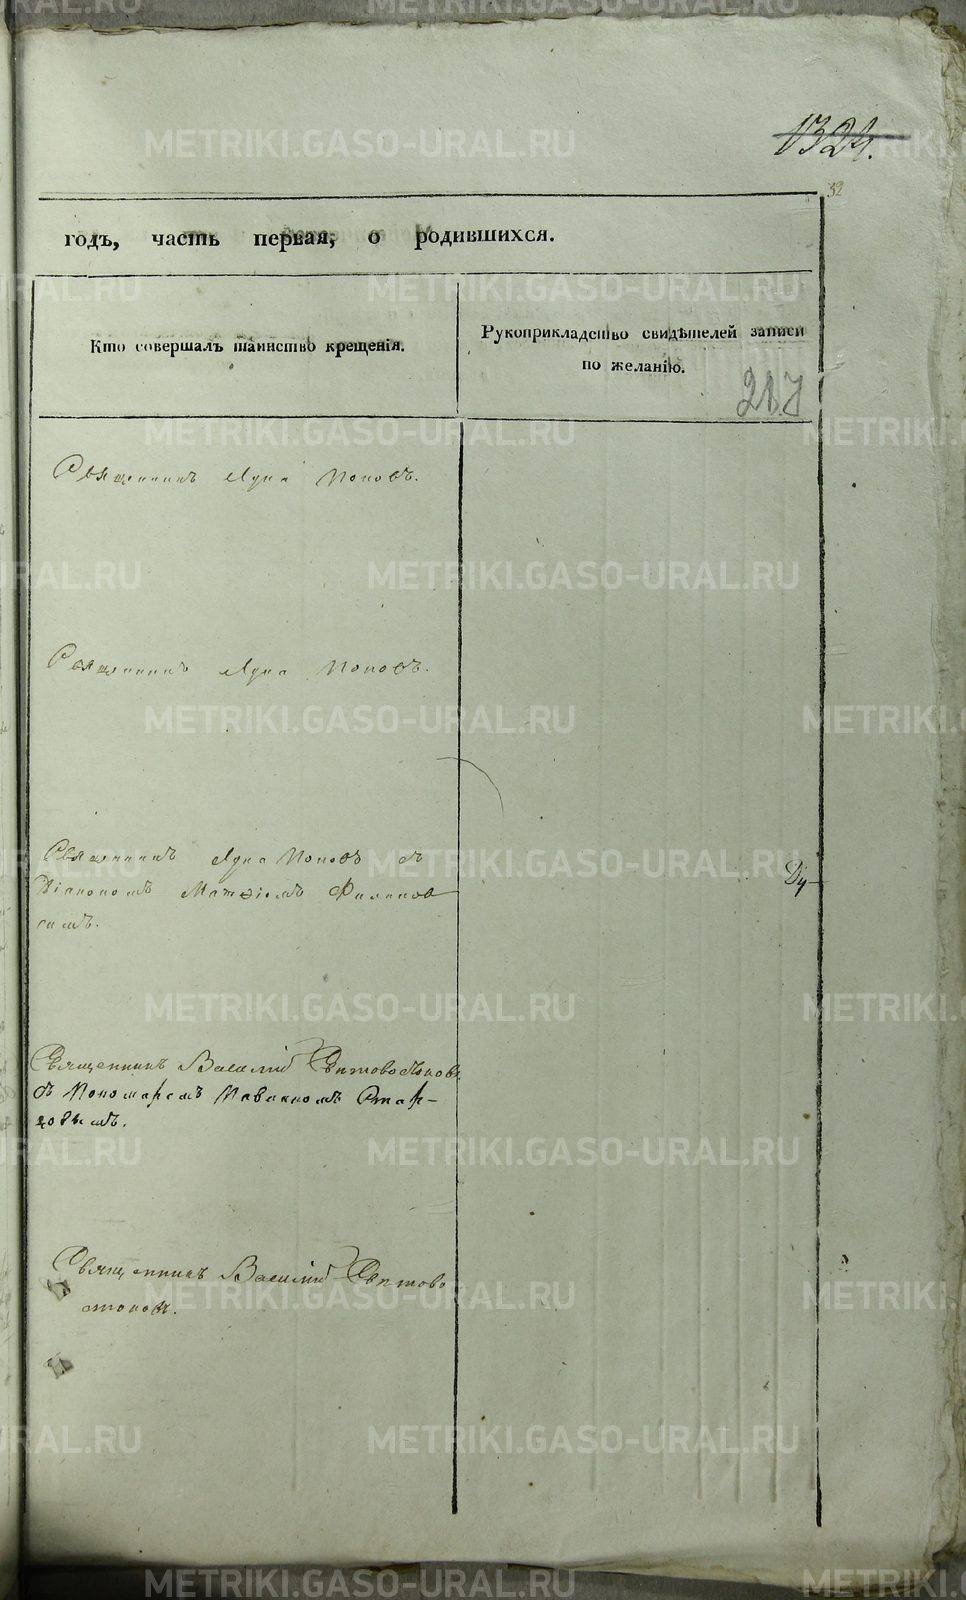 1324.
32
годъ, часть первая, о родившихся.
Кто совершалъ таинство крещенія.
Рукоприкладство свидѣтелей записи
по желанію.
217
Священникъ Лука Поповъ.
Священникъ Лука Поповъ.
Священникъ Лука Поповъ съ
Діакономъ Матѳіемъ Филипов
скимъ.
Священникъ Василій
съ Пономаремъ Стар-
цовымъ.
Священникъ Василій
METRIKI.GASO-URAL.RU